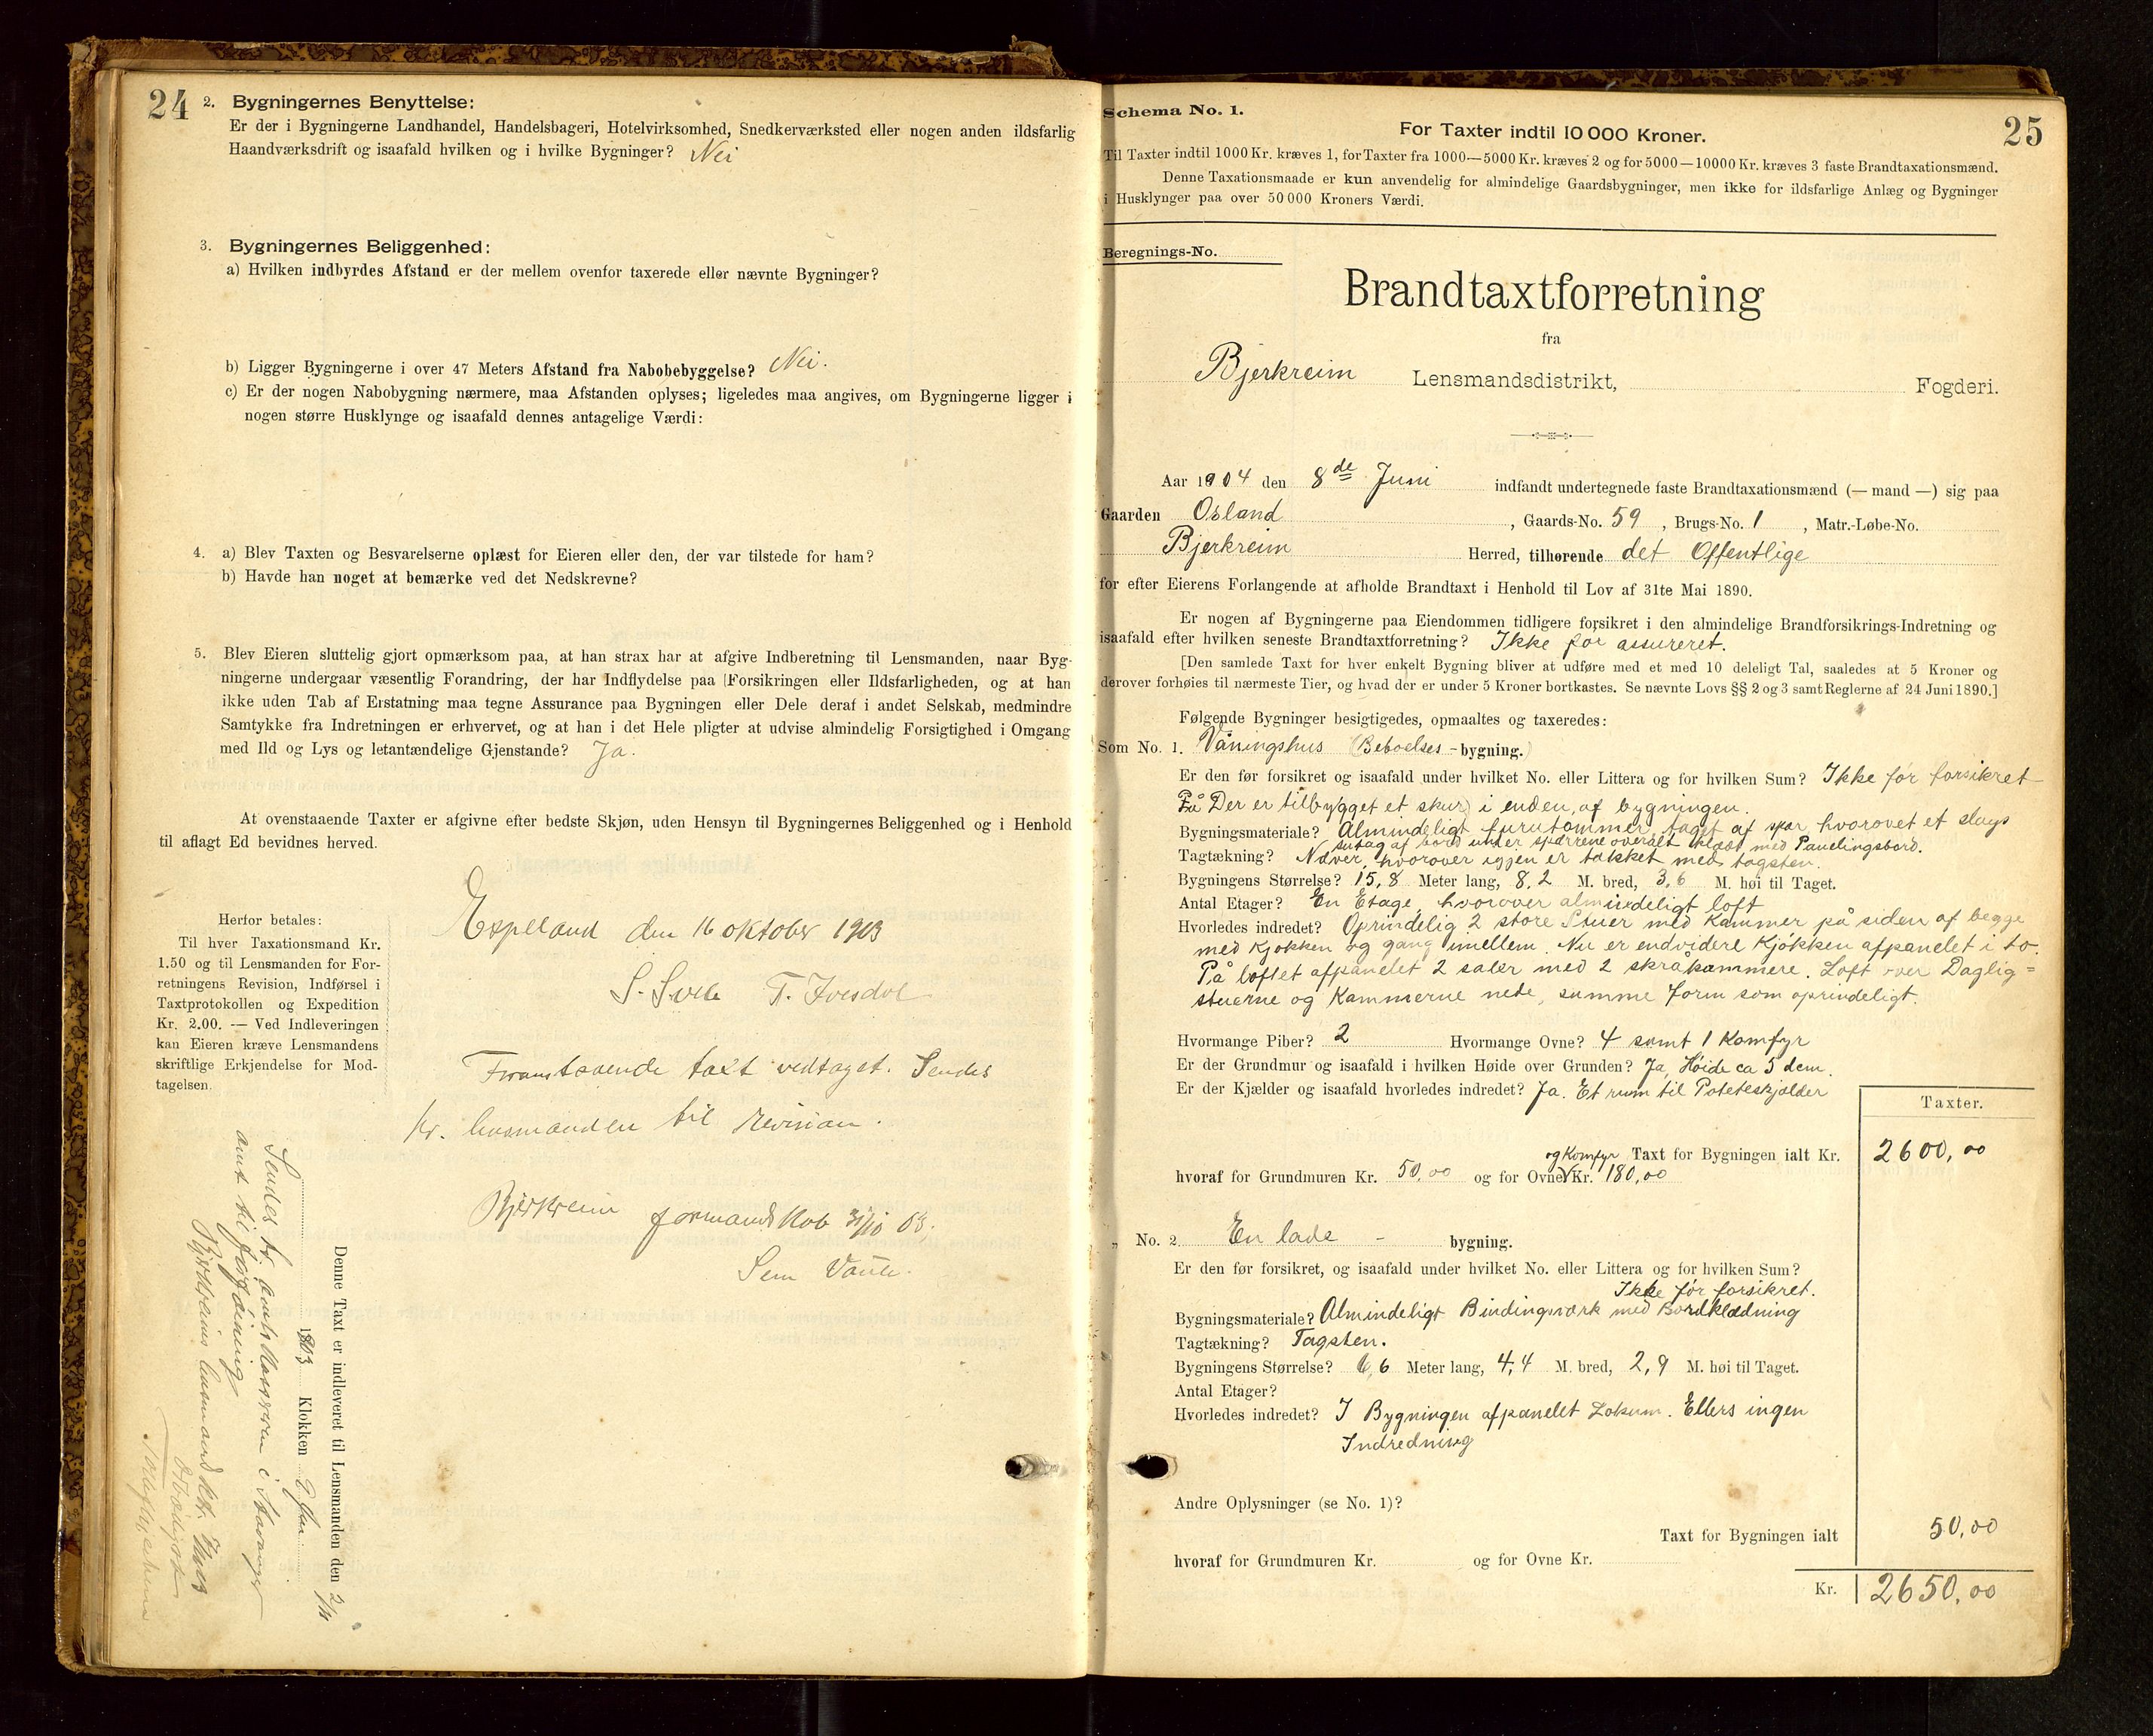 24
2. Bygningernes Benyttelse:
Er der i Bygningerne Landhandel, Handelsbageri, Hotelvirksomhed, Snedkerværksted eller nogen anden ildsfarlig
Haandværksdrift og isaafald hvilken og i hvilke Bygninger? Nei
3. Bygningernes Beliggenhed:
a) Hvilken indbyrdes Afstand er der mellem ovenfor taxerede eller nævnte Bygninger?
b) Ligger Bygningerne i over 47 Meters Afstand fra Nabobebyggelse? Nei.
c) Er der nogen Nabobygning nærmere, maa Afstanden oplyses; ligeledes maa angives, om Bygningerne ligger i
nogen større Husklynge og isaafald dennes antagelige Værdi:
4. a) Blev Taxten og Besvarelserne oplæst for Eieren eller den, der var tilstede for ham?
b) Havde han noget at bemærke ved det Nedskrevne?
5. Blev Eieren sluttelig gjort opmærksom paa, at han strax har at afgive Indberetning til Lensmanden, naar Byg-
ningerne undergaar væsentlig Forandring, der har Indflydelse paa (Forsikringen eller Ildsfarligheden, og at han
ikke uden Tab af Erstatning maa tegne Assurance paa Bygningen eller Dele deraf i andet Selskab, medmindre
Samtykke fra Indretningen er erhvervet, og at han i det Hele pligter at udvise almindelig Forsigtighed i Omgang
med Ild og Lys og letantændelige Gjenstande? Ja.
At ovenstaaende Taxter er afgivne efter bedste Skjøn, uden Hensyn til Bygningernes Beliggenhed og i Henhold
til aflagt Ed bevidnes herved.
Espeland den 16 oktober 1903
S. Svele T.
Herfor betales:
Til hver Taxationsmand Kr.
1.50 og til Lensmanden for For-
retningens Revision, Indførsel i
Taxtprotokollen og Expedition
Kr. 2.00. — Ved Indleveringen
kan Eieren kræve Lensmandens
skriftlige Erkjendelse for Mod-
tagelsen.
Framstaaende taxt vedtaget. Sendes
Hr. lensmanden til revision.
Bjerkreim formandskab 31/10 03.
Denne Taxt er indleveret til Lensmanden den 2/11
1903 Klokken 2
Sendes hr. amtskasserer i Stavanger
amt til
Bjerkreims lensmand
25
Schema No. 1.
For Taxter indtil 10 000 Kroner.
Til Taxter indtil 1000 Kr. kræves 1, for Taxter fra 1000—5000 Kr. kræves 2 og for 5000—10000 Kr. kræves 3 faste Brandtaxationsmænd.
Denne Taxationsmaade er kun anvendelig for almindelige Gaardsbygninger, men ikke for ildsfarlige Anlæg og Bygninger
i Husklynger paa over 50 000 Kroners Værdi.
Beregnings-No.
Brandtaxtforretning
fra
Bjerkreim Lensmandsdistrikt, Fogderi.
Aar 1904 den 8de Juni indfandt undertegnede faste Brandtaxationsmænd (— mand —) sig paa
Gaarden Osland, Gaards-No. 59, Brugs-No. 1, Matr.-Løbe-No.
Bjerkreim Herred, tilhørende det Offentlige
for efter Eierens Forlangende at afholde Brandtaxt i Henhold til Lov af 31te Mai 1890.
Er nogen af Bygningerne paa Eiendommen tidligere forsikret i den almindelige Brandforsikrings-Indretning og
isaafald efter hvilken seneste Brandtaxtforretning? Ikke før assureret.
[Den samlede Taxt for hver enkelt Bygning bliver at udføre med et med 10 deleligt Tal, saaledes at 5 Kroner og
derover forhøies til nærmeste Tier, og hvad der er under 5 Kroner bortkastes. Se nævnte Lovs §§ 2 og 3 samt Reglerne af 24 Juni 1890.]
Følgende Bygninger besigtigedes, opmaaltes og taxeredes:
Som No. 1. Våningshus (Beboelses-bygning.)
Er den før forsikret og isaafald under hvilket No. eller Littera og for hvilken Sum? Ikke før forsikret
På Der er tilbygget et skur i enden af bygningen.
Bygningsmateriale? Almindeligt furutømmer, taget af spær hvorovet et slags
sutag af bord under sparrene overalt klædt med Panelingsbord.
Tagtækning? Næver, hvorover igjen er tækket med tagsten.
Bygningens Størrelse? 15,8 Meter lang, 8,2 M. bred, 3,6 M. høi til Taget.
Antal Etager? En Etage, hvorover almindeligt loft
Hvorledes indredet? Oprindelig 2 store Stuer med Kammer på siden af begge
med Kjøkken og gang imellem. Nu er endvidere Kjøkken afpanelet i to.
På loftet afpanelet 2 saler med 2 skråkammere. Loft over Daglig=
stuerne og Kammerne nede, samme form som oprindeligt.
Hvormange Piber? 2 Hvormange Ovne? 4 samt 1 Komfyr
Er der Grundmur og isaafald i hvilken Høide over Grunden? Ja, Høide ca 5 dcm.
Er der Kjælder og isaafald hvorledes indredet? Ja. Et rum til Poteteskjælder
Taxter.
og Komfyr Taxt for Bygningen ialt Kr. 2600,00
hvoraf for Grundmuren Kr. 50,00 og for Ovne Kr. 180,00
„ No. 2. En lade - bygning.
Er den før forsikret, og isaafald under hvilket No. eller Littera og for hvilken Sum?
Ikke før forsikret.
Bygningsmateriale? Almindeligt Bindingsværk med Bordklædning
Tagtækning? Tagsten.
Bygningens Størrelse? 6,6 Meter lang, 4,4 M. bred, 2,9 M. høi til Taget.
Antal Etager?
Hvorledes indredet? I Bygningen afpanelet Lokum. Ellers ingen
Indredning
Andre Oplysninger (se No. 1)?
Taxt for Bygningen ialt 50,00
hvoraf for Grundmuren Kr. og for Ovne Kr.
Kr. 2650,00